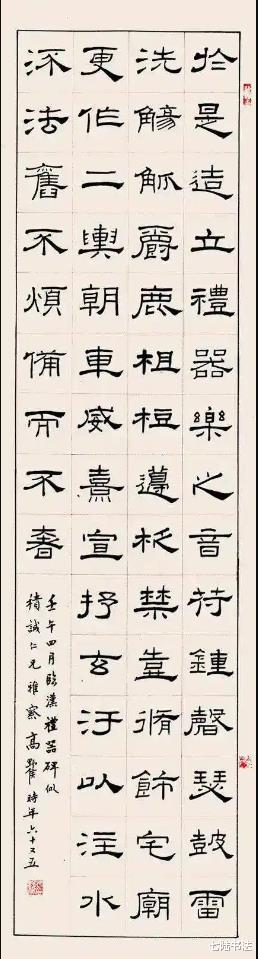 於是造立禮器樂之音苻鍾磬瑟鼓雷
洗觴觚爵鹿柤梪籩柉禁壺脩飾宅廟
更作二輿朝車威熹宣抒玄汙以注水
流法舊不煩備而不奢
壬午四月臨漢禮器碑似
積誠仁兄雅察 高 時年六十又五
七陆书法